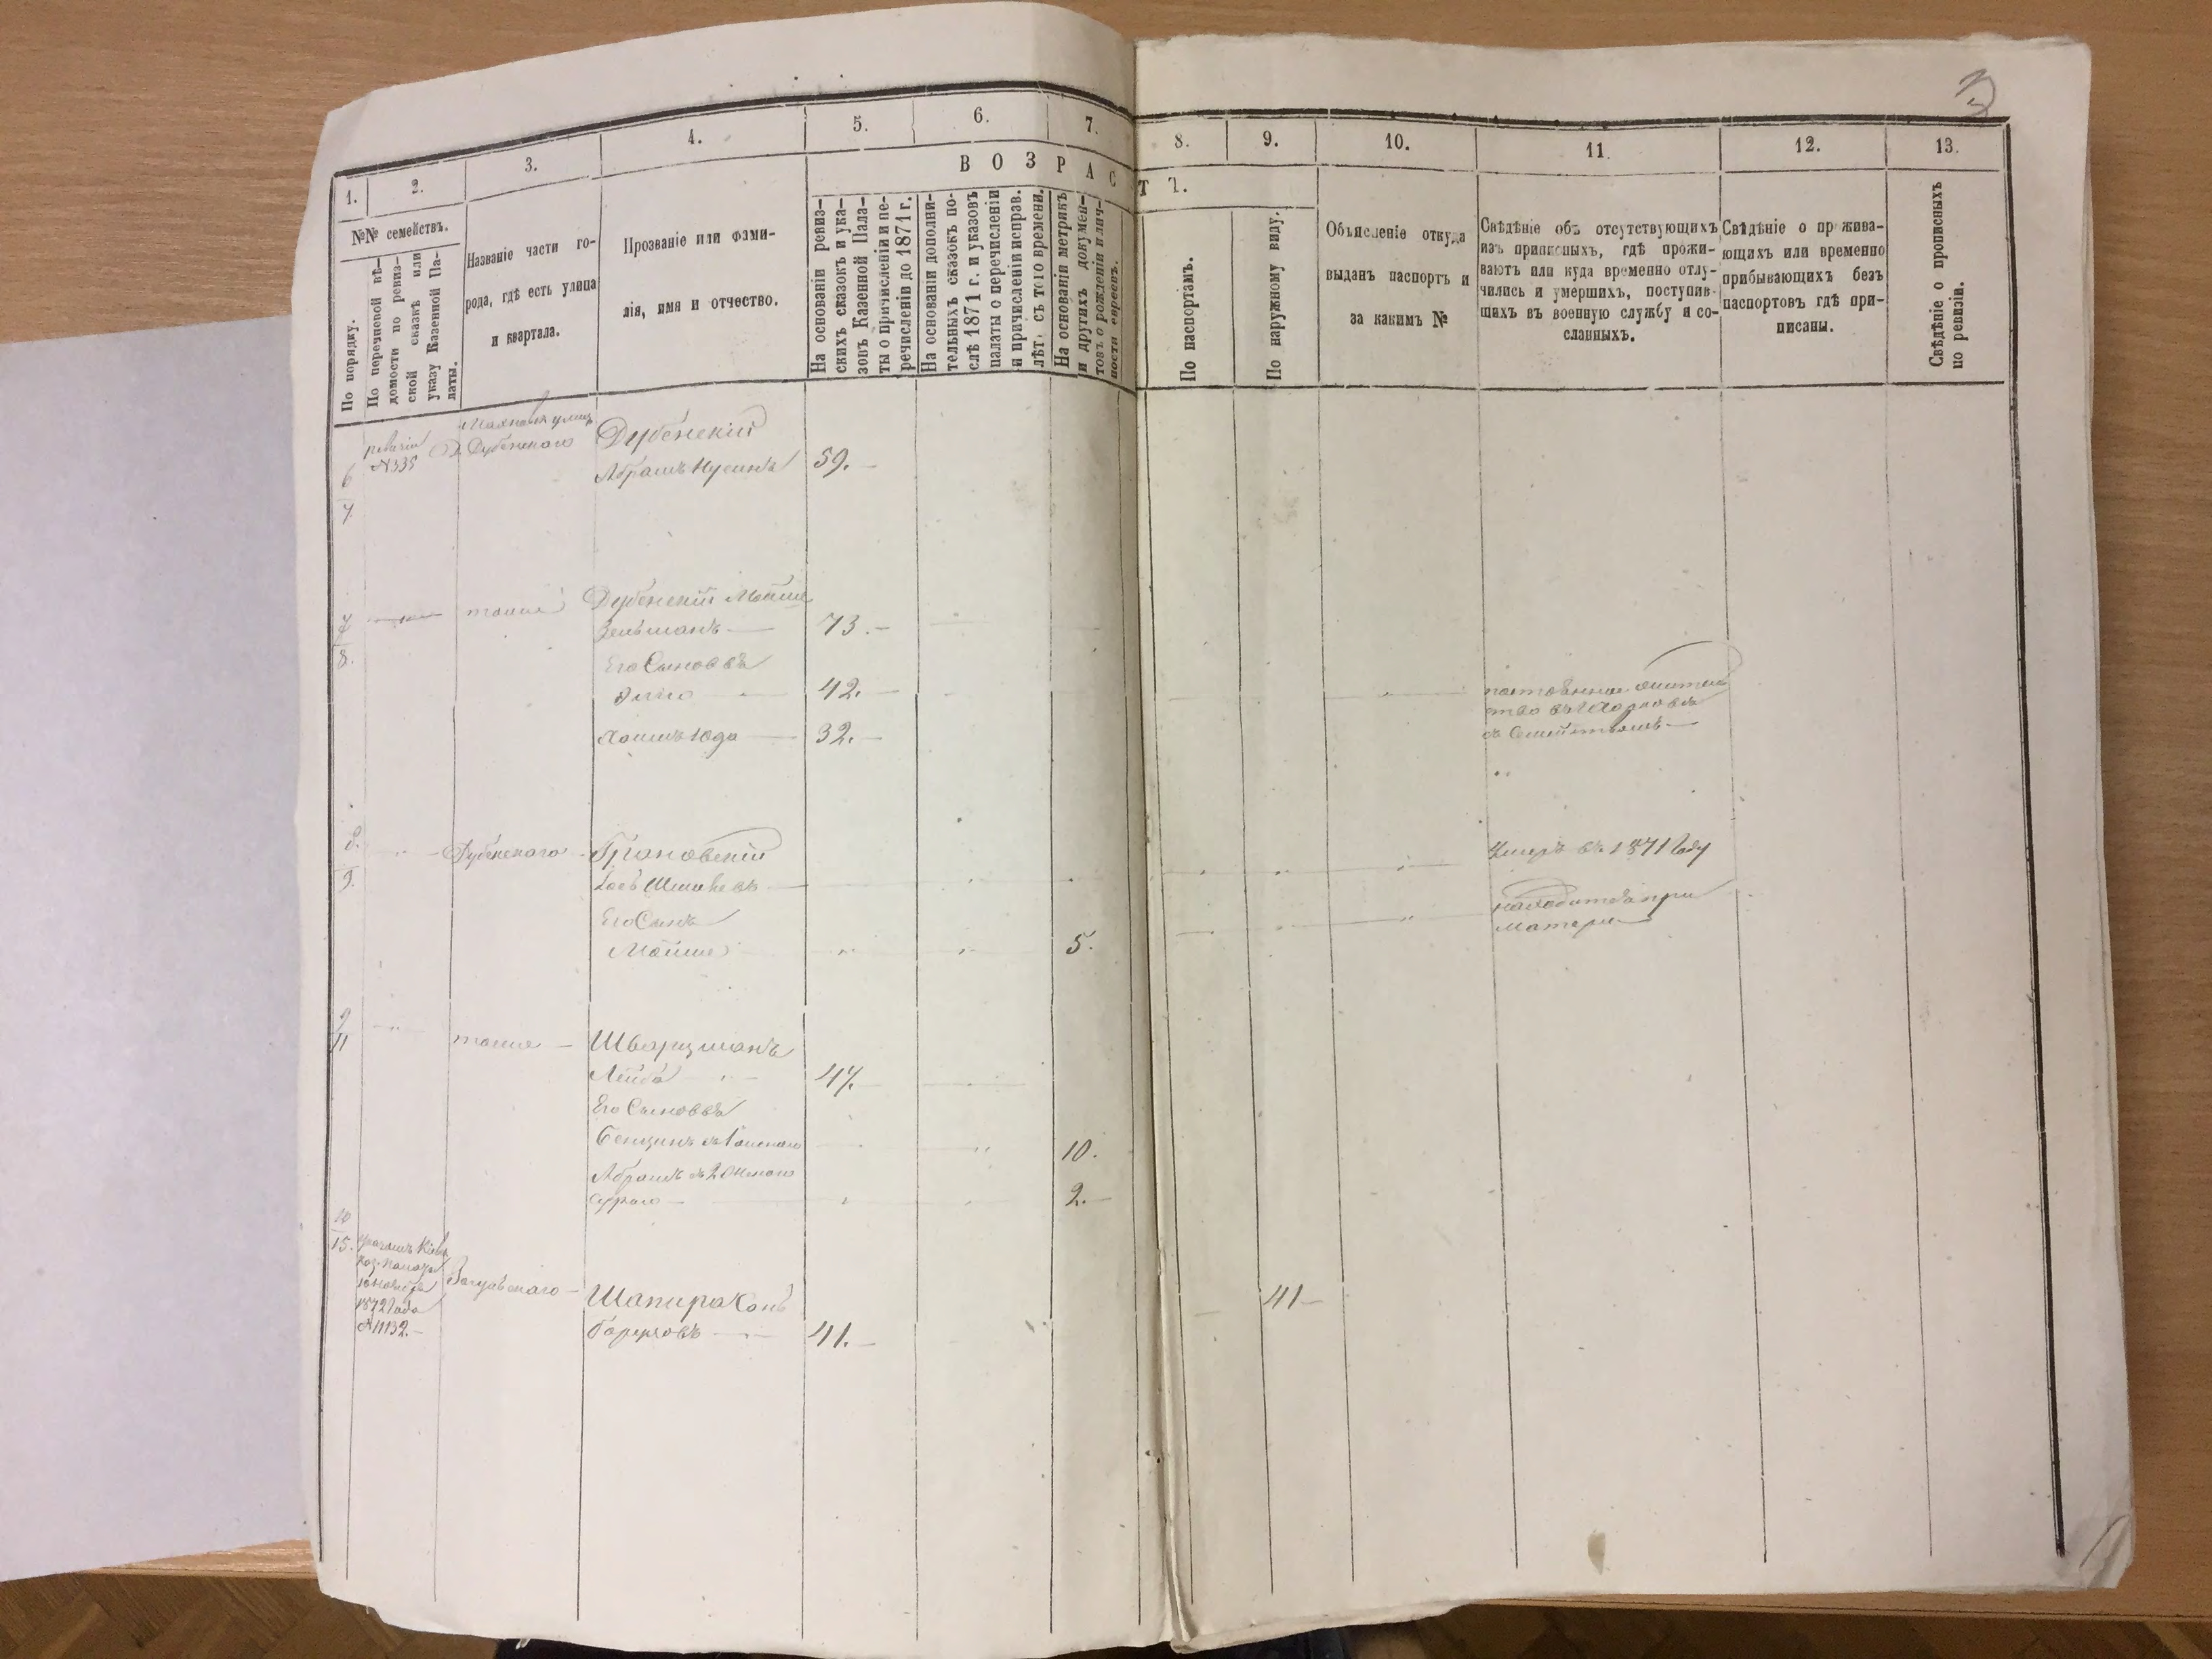 3
1.
2.
3.
4.
5.
6.
7.
8.
9.
10.
11.
12.
13.
ВОЗРАСТЪ.
№№ семействъ.
По порядку.
По перечневой вѣ-
домости по ревиз-
ской сказкѣ или
указу Казенной Па-
латы.
Названіе части го-
рода, гдѣ есть улица
и квартала.
Прозваніе или фами-
лія, имя и отчество.
На основаніи ревиз-
скихъ сказокъ и ука-
зовъ Казенной Пала-
ты о причисленіи и пе-
речисленіи до 1871 г.
На основаніи дополни-
тельныхъ сказокъ по-
слѣ 1871 г. и указовъ
палаты о перечисленіи
и причисленіи исправ.
лѣт. съ того времени.
На основаніи метрикъ
и другихъ докумен-
товъ о рожденіи и лич-
ности евреевъ.
По паспортамъ.
По наружному виду.
Объясленіе откуда
выданъ паспортъ и
за какимъ №
Свѣдѣніе объ отсутствующихъ
изъ приписныхъ, гдѣ прожи-
ваютъ или куда временно отлу-
чились и умершихъ, поступив-
шихъ въ военную службу и со-
сланныхъ.
Свѣдѣніе о прожива-
ющихъ или временно
прибывающихъ безъ
паспортовъ гдѣ при-
писаны.
Свѣдѣніе о прописныхъ
по ревизіи.
6
7
ревизіи
№335
Дубенскаго
Дубенскій
Абрамъ Нусинъ 59.
7
8.
тоже
Дубенскій Мойше
Зельманъ 73.
Его Сыновья
42.
Хаимъ Юда 32.
въ Харьковѣ
съ Семействомъ
8.
9.
Дубенскаго
Грановскій
Умеръ въ 1871 Году
Его Сынъ
Мойше 5.
находится при
Матери
9
11
тоже
Шварцманъ
Лейба 47.
Его Сыновья
Бенцинъ 10.
Абрамъ
2.
10
15.
1872 Года
№11132.
Шапира
Боруховъ 41.
41